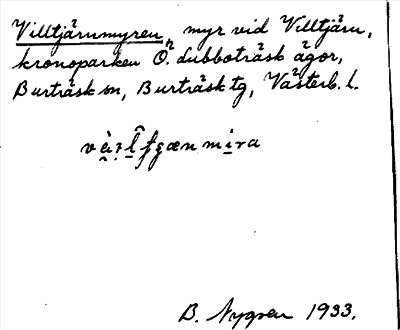 Villtjärnmyren, myr vid Villtjärn,
kronoparken Ö. Lubboträsk ägor,
Burträsk sn, Burträsk tg, Västerb. l.
B. Nygren 1933.